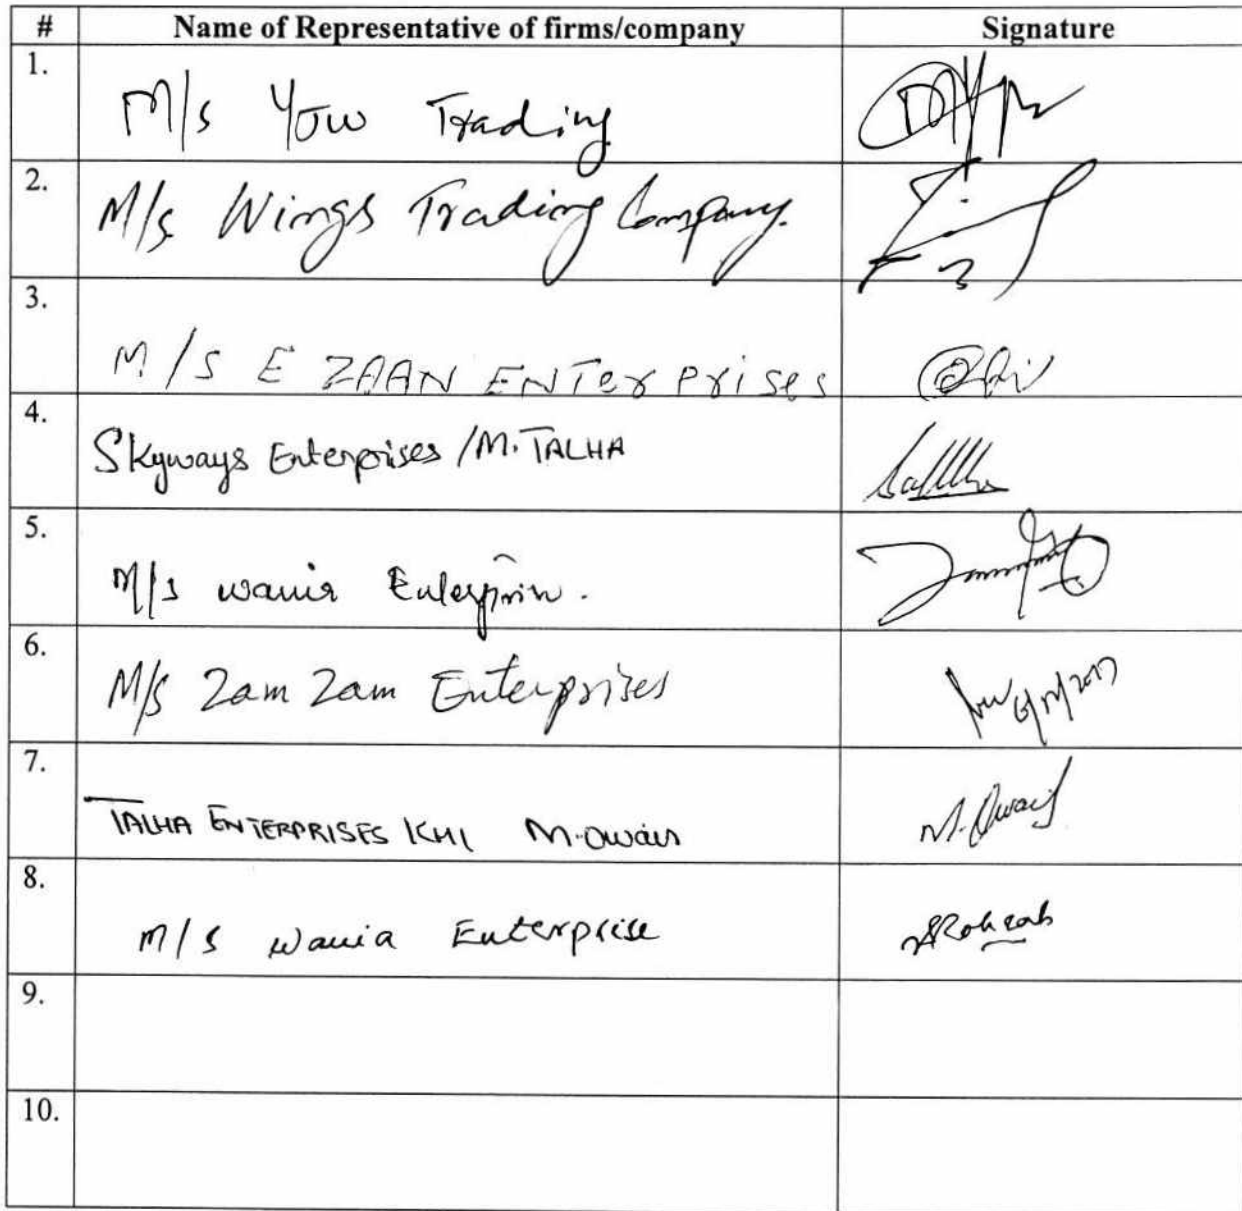 # Name of Representative of firms/company Signature
1. M/s You Trading
2. M/s Wings Trading Company.
3. M/S E ZAAN ENTerPrises
4. Skyways Enterprises /M. TALHA
5. M/s wania Enterprise.
6. M/s Zam Zam Enterprises
7. TALHA ENTERPRISES KHI M. Owais M. Owais
8. M/S Wania Enterprise
9.
10.